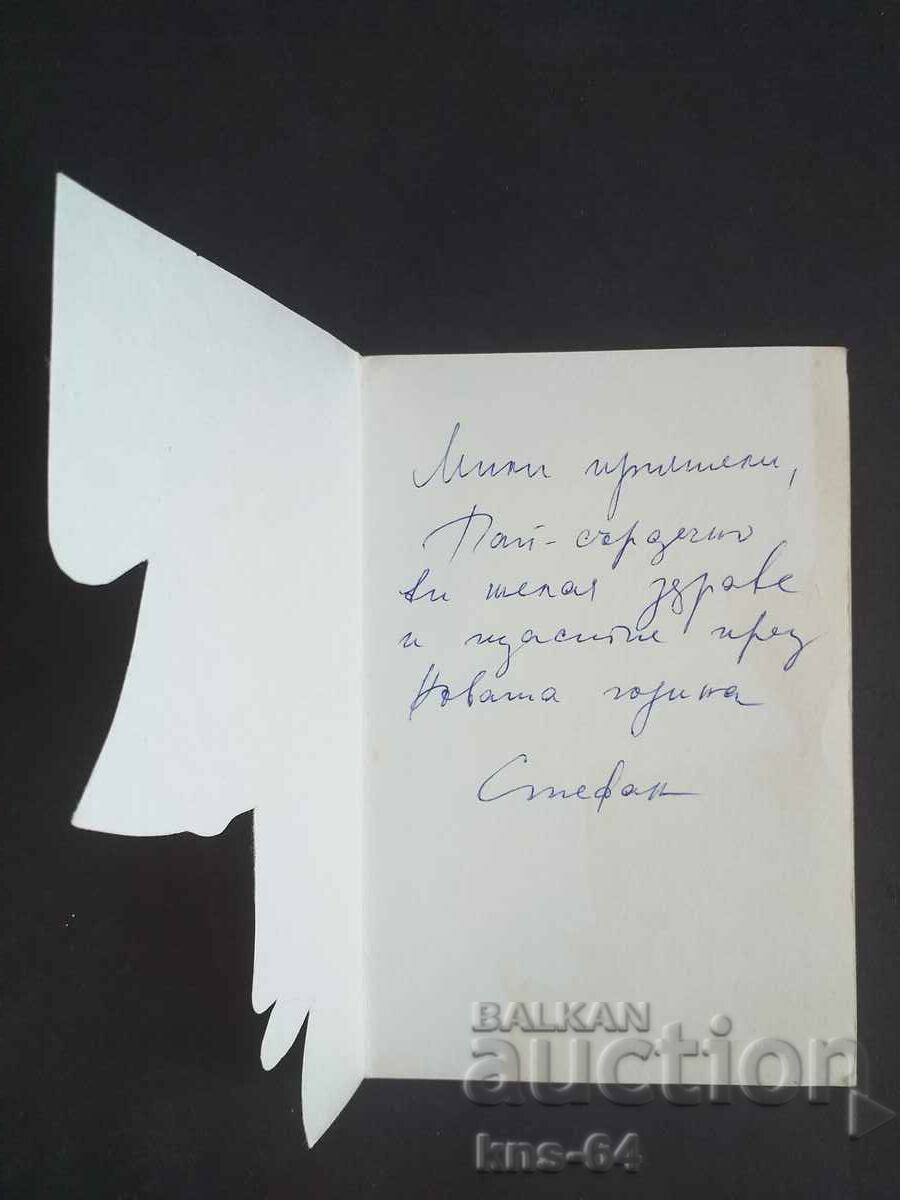 Мили приятели,
Най-сърдечно
ви желая здраве
и щастие през
Новата година
Стефан
BALKAN
auction
kns-64